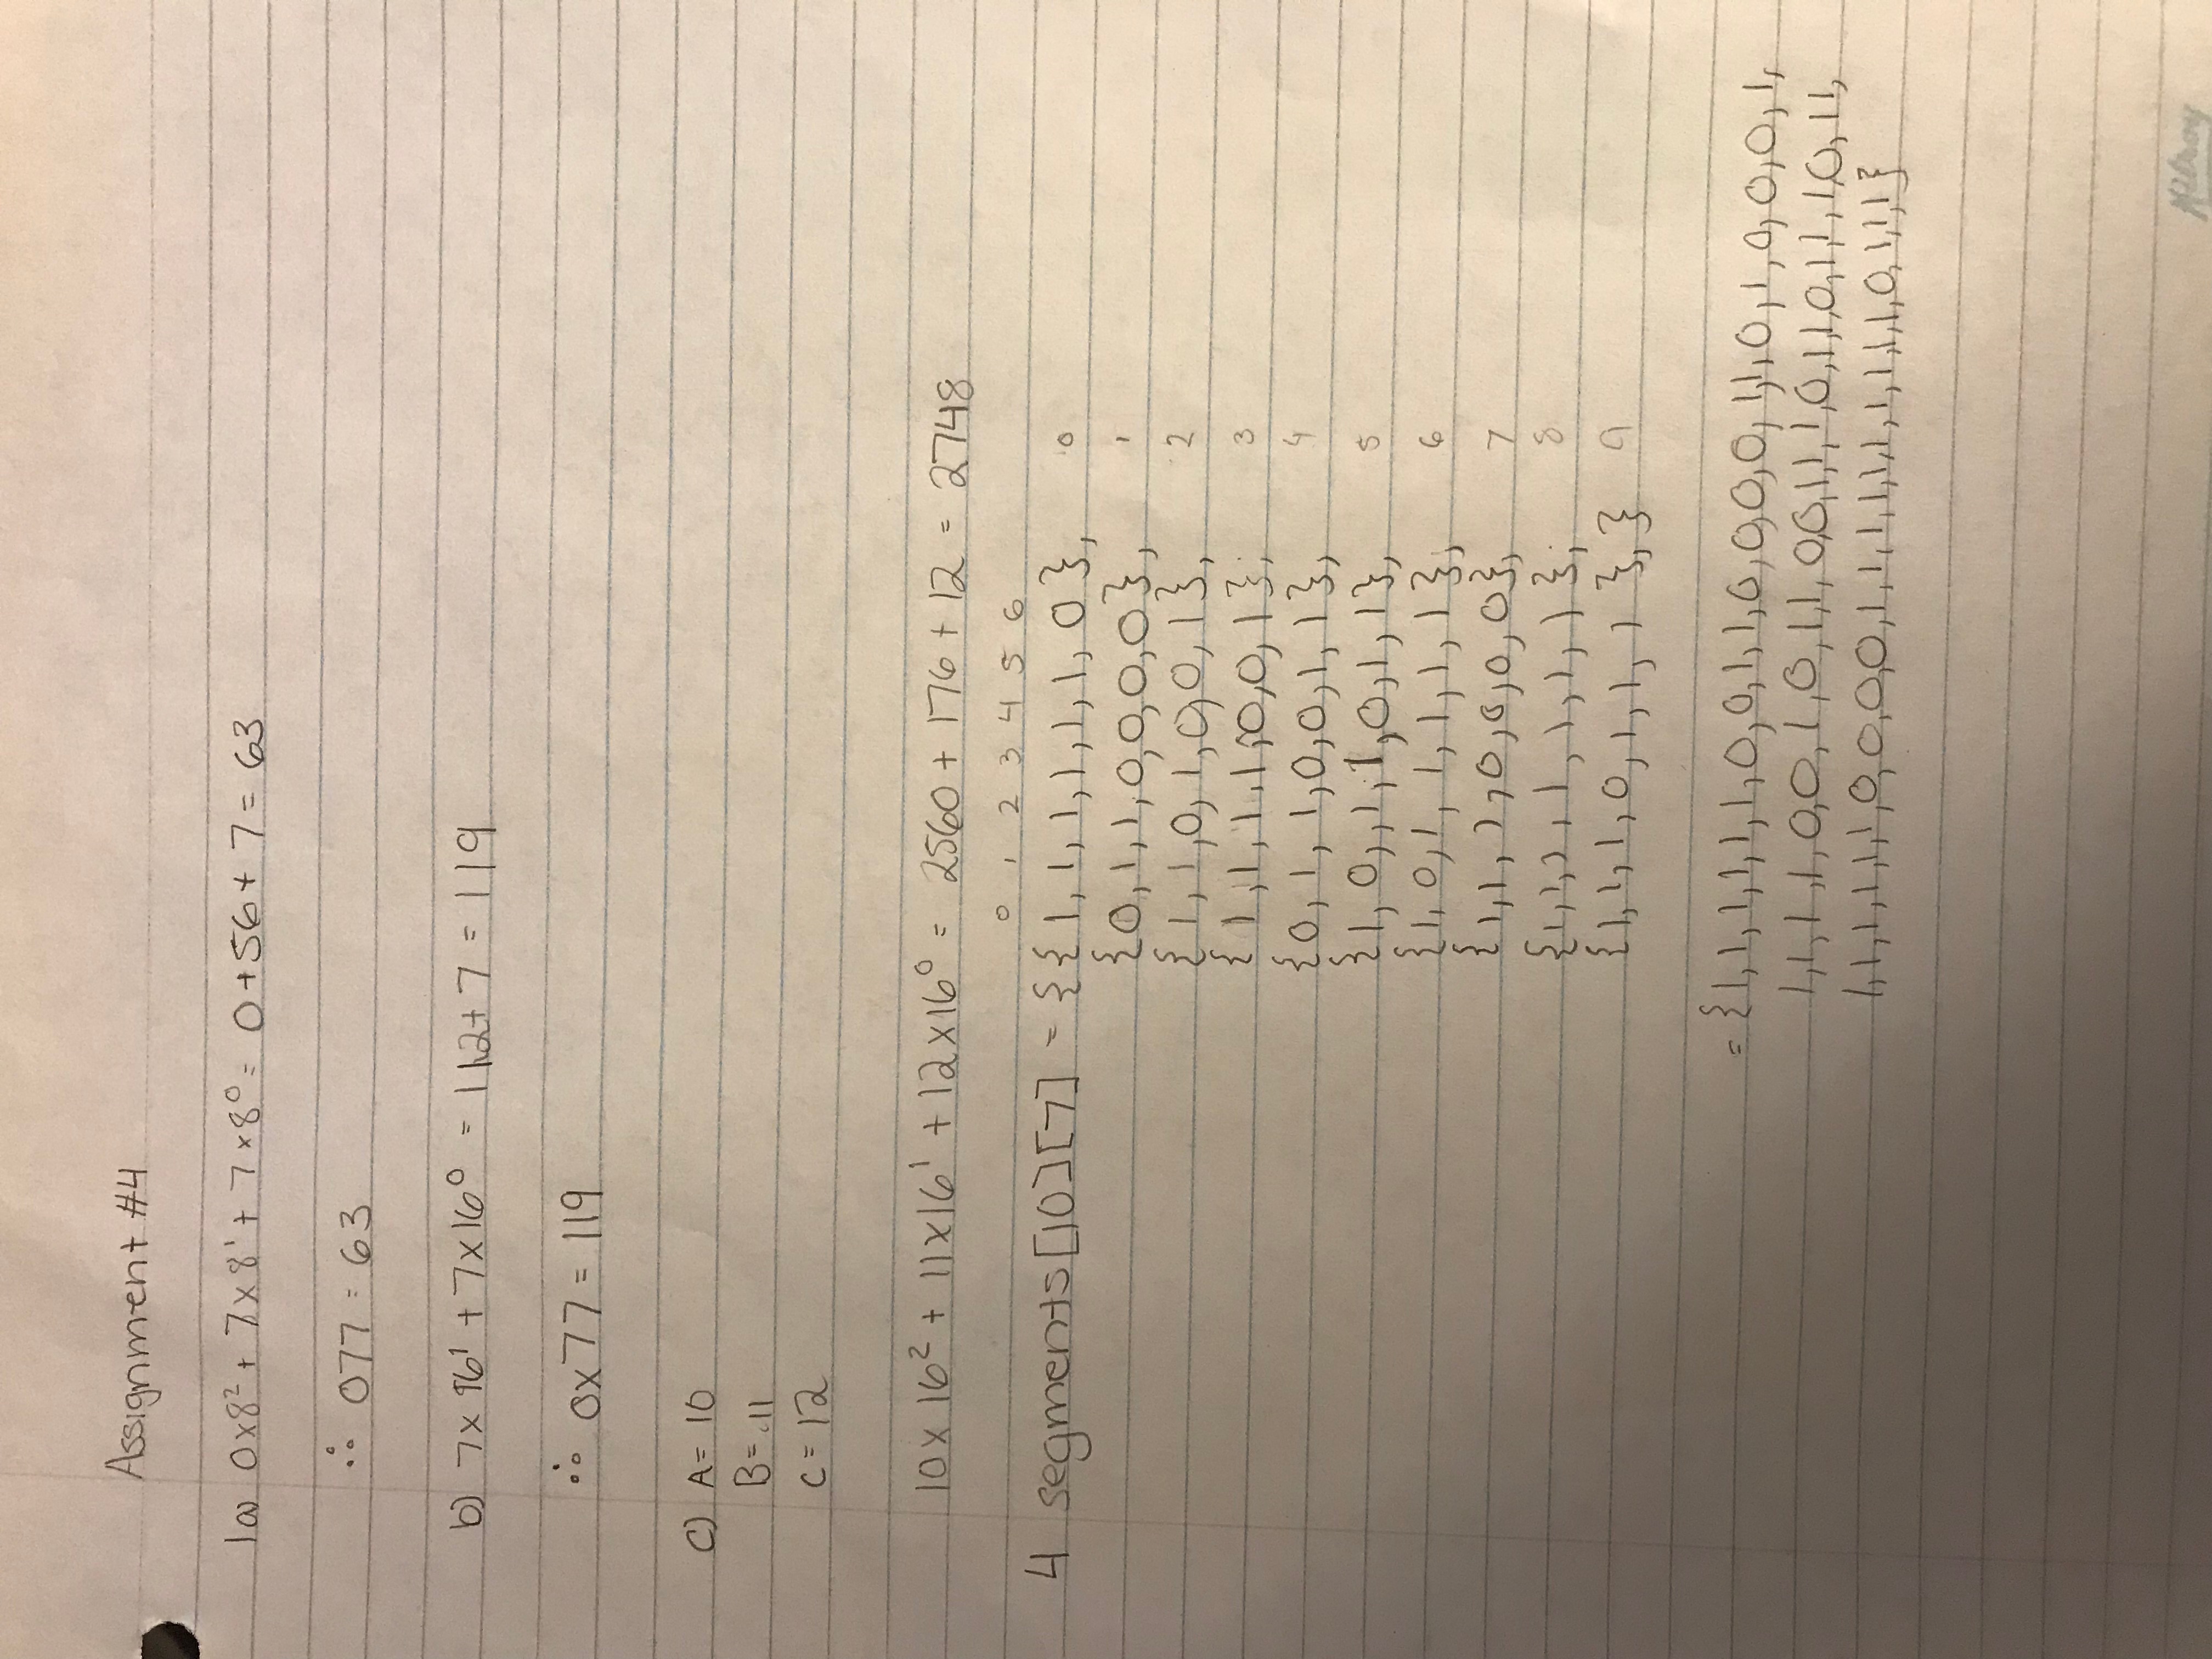 Assignment #4
1a) 0x8² + 7x8¹ + 7x8⁰ = 0+56+7 = 63
∴ 077 = 63
b) 7x16¹ + 7x16⁰ = 112+7 = 119
∴ 0x77 = 119
c) A= 10
B= 11
C= 12
10x16² + 11x16¹ + 12x16⁰ = 2560 + 176 + 12 = 2748
0 1 2 3 4 5 6
4 segments[10][7] = {{1,1,1,1,1,1,0}, 0
{0,1,1,0,0,0,0}, 1
{1,1,0,1,0,0,1}, 2
{1,1,1,1,0,0,1}, 3
{0,1,1,0,0,1,1}, 4
{1,0,1,1,0,1,1}, 5
{1,0,1,1,1,1,1}, 6
{1,1,1,0,0,0,0}, 7
{1,1,1,1,1,1,1}, 8
{1,1,1,0,1,1,1},} 9
= {1,1,1,1,1,1,0,0,1,1,0,0,0,0,1,1,0,1,0,0,0,1,
1,1,1,1,0,0,1,0,1,1,0,0,1,1,1,0,1,1,0,1,1,1,0,1,1,
1,1,1,1,1,1,0,0,0,0,1,1,1,1,1,1,1,1,1,1,0,1,1,1}
Hilroy